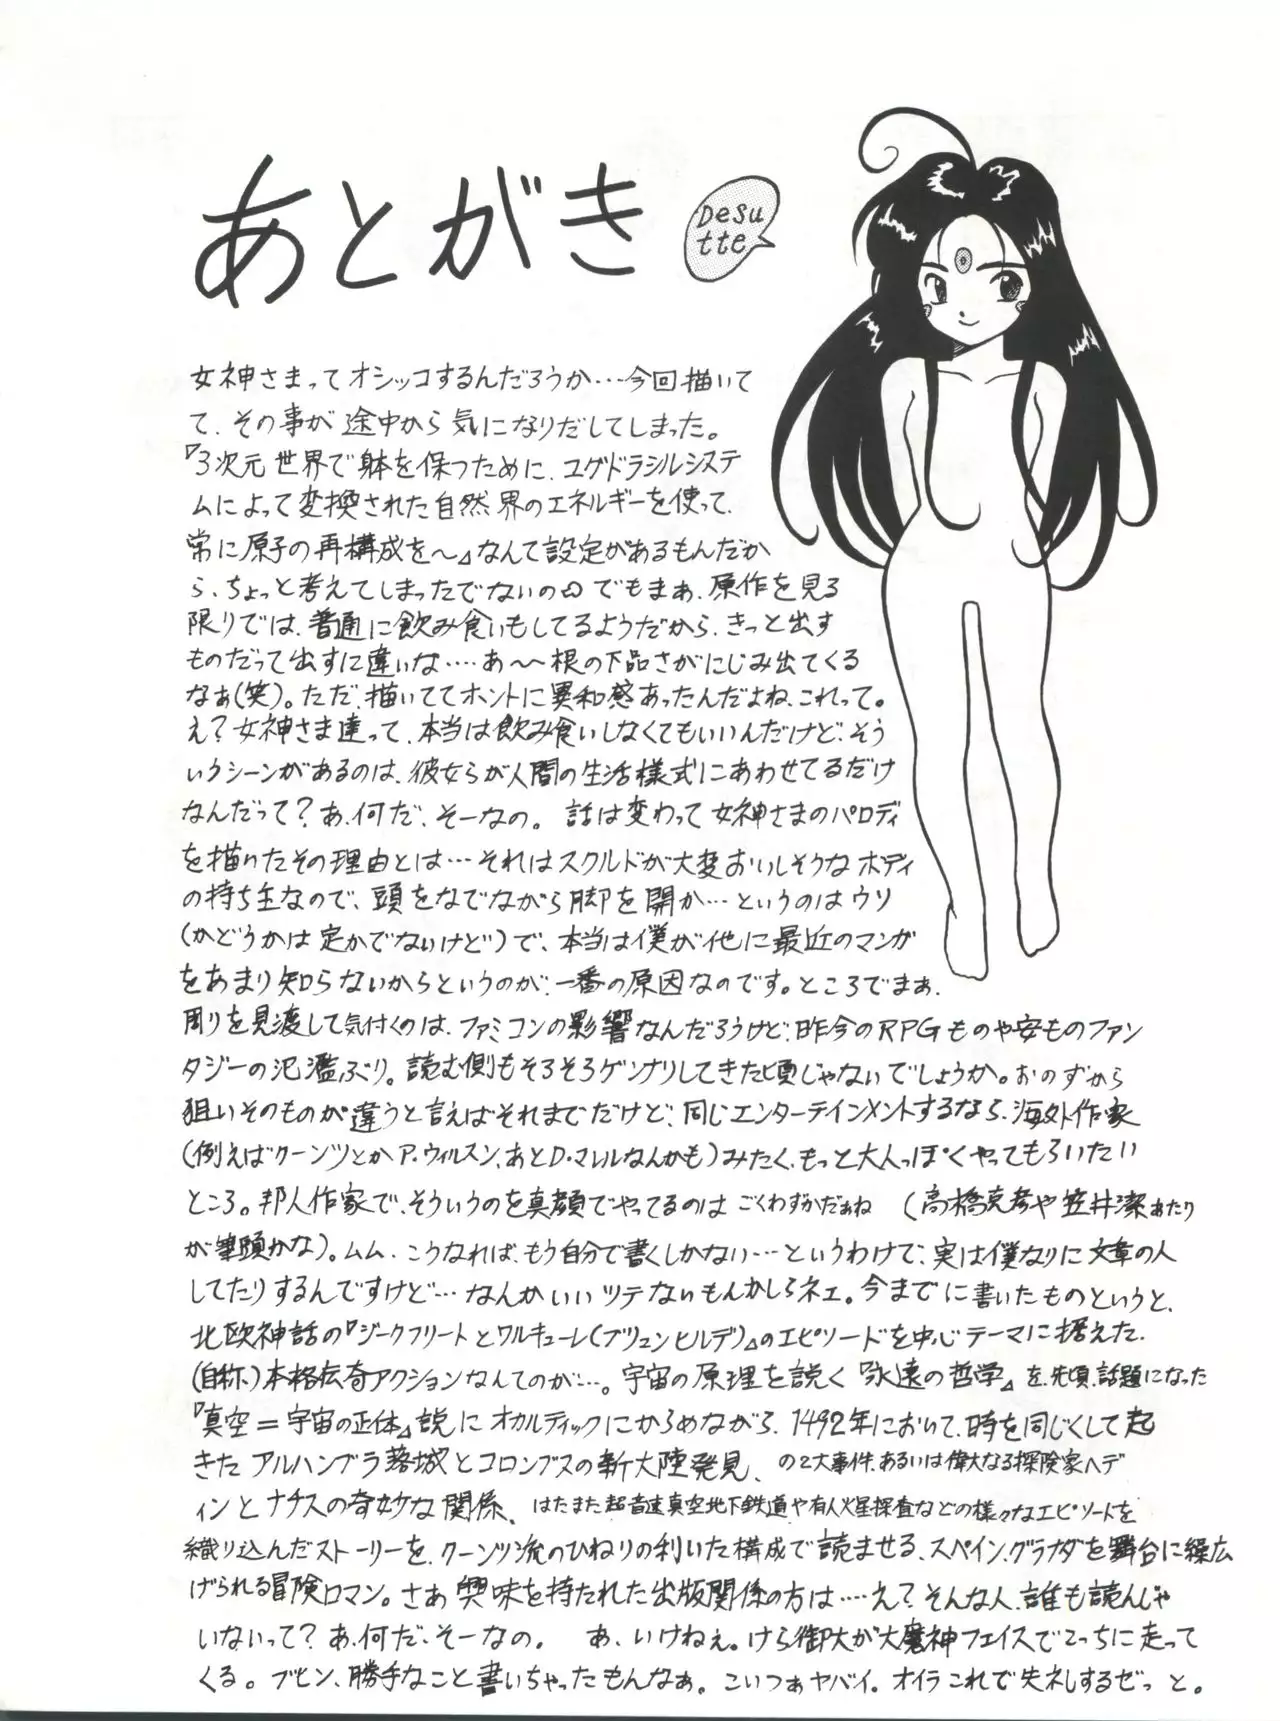 あとがき
Desu
tte
女神さまってオシッコするんだろうか…今回描いて
て、その事が途中から気になりだしてしまった。
『3次元世界で躰を保つために、ユグドラシルシステ
ムによって変換された自然界のエネルギーを使って、
常に原子の再構成を〜』なんて設定があるもんだか
ら、ちょっと考えてしまったでないの。でもまぁ、原作を見る
限りでは、普通に飲み食いもしてるようだから、きっと出す
ものだって出すに違いな……あ〜〜根の下品さがにじみ出てくる
なぁ(笑)。ただ、描いててホントに異和感あったんだよね、これって。
え?女神さま達って、本当は飲み食いしなくてもいいんだけど、そう
いうシーンがあるのは、彼女らが人間の生活様式にあわせてるだけ
なんだって?あ、何だ、そーなの。 話は変わって女神さまのパロディ
を描いたその理由とは…それはスクルドが大変おいしそうなボディ
の持ち主なので、頭をなでながら脚を開か…というのはウソ
(かどうかは定かでないけど)で、本当は僕が他に最近のマンガ
をあまり知らないからというのが、一番の原因なのです。ところでまぁ、
周りを見渡して気付くのは、ファミコンの影響なんだろうけど、昨今のRPGものや安ものファン
タジーの氾濫ぶり。読む側もそろそろゲンナリしてきた頃じゃないでしょうか。おのずから
狙いそのものが違うと言えばそれまでだけど、同じエンターテインメントするなら、海外作家
(例えばクーンツとかA・ウィルスン、あとD・マレルなんかも)みたく、もっと大人っぽくやってもらいたい
ところ。邦人作家で、そういうのを真顔でやってるのはごくわずかだぁね (高橋克彦や笠井潔あたり
が筆頭かな)。ムム、こうなれば、もう自分で書くしかない…というわけで、実は僕なりに文章の人
してたりするんですけど…なんかいいツテないもんかしらネェ。今までに書いたものというと、
北欧神話の『ジークフリートとワルキューレ(ブリュンヒルデ)』のエピソードを中心テーマに据えた、
(自称)本格伝奇アクションなんてのが…。宇宙の原理を説く『永遠の哲学』を、先頃、話題になった
『真空=宇宙の正体』説にオカルティックにからめながら、1492年において、時を同じくして起
きたアルハンブラ落城とコロンブスの新大陸発見、の2大事件、あるいは偉大なる探険家ヘデ
ィンとナチスの奇妙な関係、はたまた超音速真空地下鉄道や有人火星探査などの様々なエピソードを
織り込んだストーリーを、クーンツ流のひねりの利いた構成で読ませる、スペイン、グラナダを舞台に繰広
げられる冒険ロマン。さあ興味を持たれた出版関係の方は……え?そんな人、誰も読んじゃ
いないって?あ、何だ、そーなの。 あ、いけねぇ。けら御大が大魔神フェイスでこっちに走って
くる。ブヒン、勝手なこと書いちゃったもんなぁ。こいつぁヤバイ。オイラこれで失礼するぜっと。